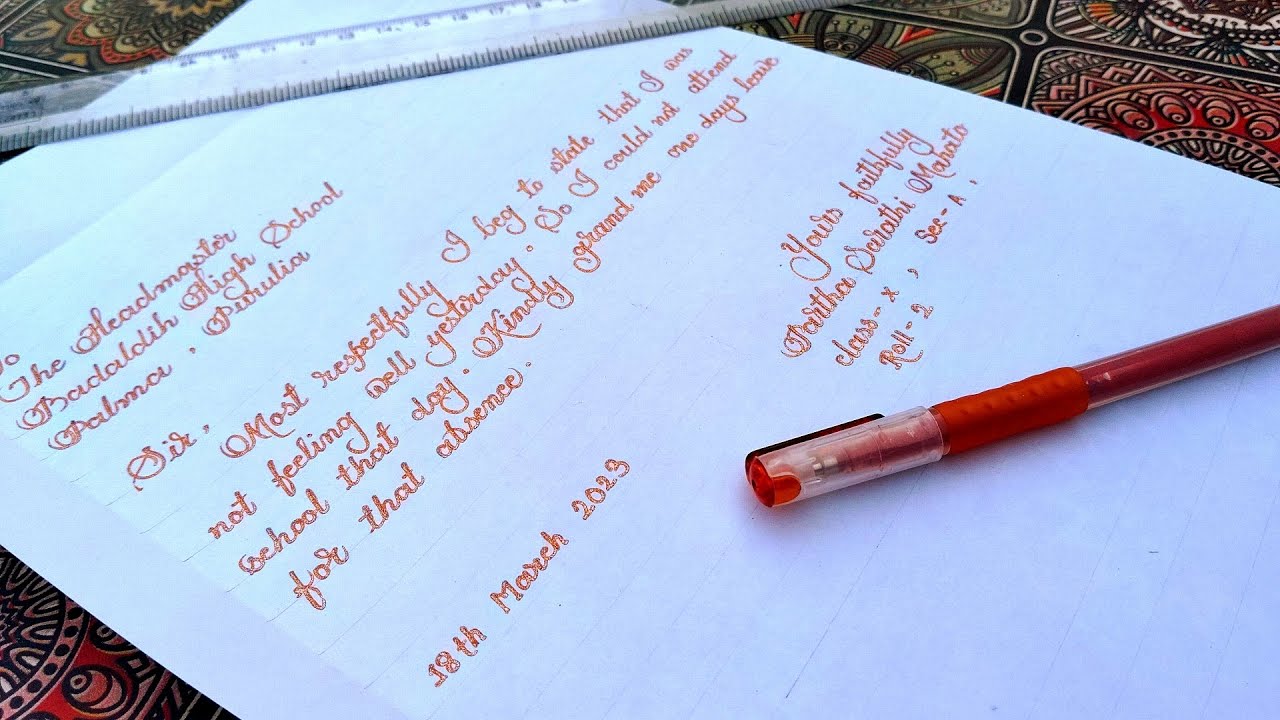 To
The Headmaster
Badaldih High School
Palma , Purulia
Sir,
Most respectfully I beg to state that I was
not feeling well yesterday. So I could not attend
school that day. Kindly grand me one days leave
for that absence.
18th March 2023
Yours faithfully
Partha Sarathi Mahato
class- x , sec- A ,
Roll- 2